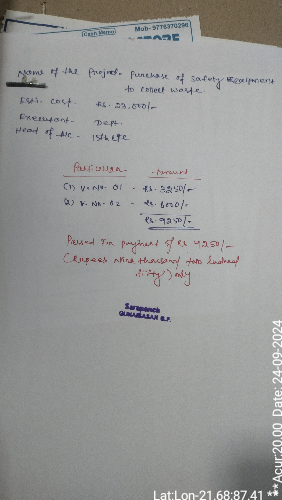 Cash Memo
Mob- 9776370298
STORE
Name of the Project- Purchase of Safety Equipment
to collect waste.
Est. Cost - Rs. 23,000/-
Executant- Dept.
Head of A/c - 15th CFC
Particular Amount
(1) V. No- 01 - Rs. 3250/-
(2) V. No- 02 - Rs. 6000/-
Rs. 9250/-
Passed for payment of Rs 9250/-
(Rupees Nine thousand two hundred
fifty) only
Sarapanch
GUNABASAN G.P.
Lat:Lon-21.68:87.41 *** Acur:20.00 Date: 24-09-2024